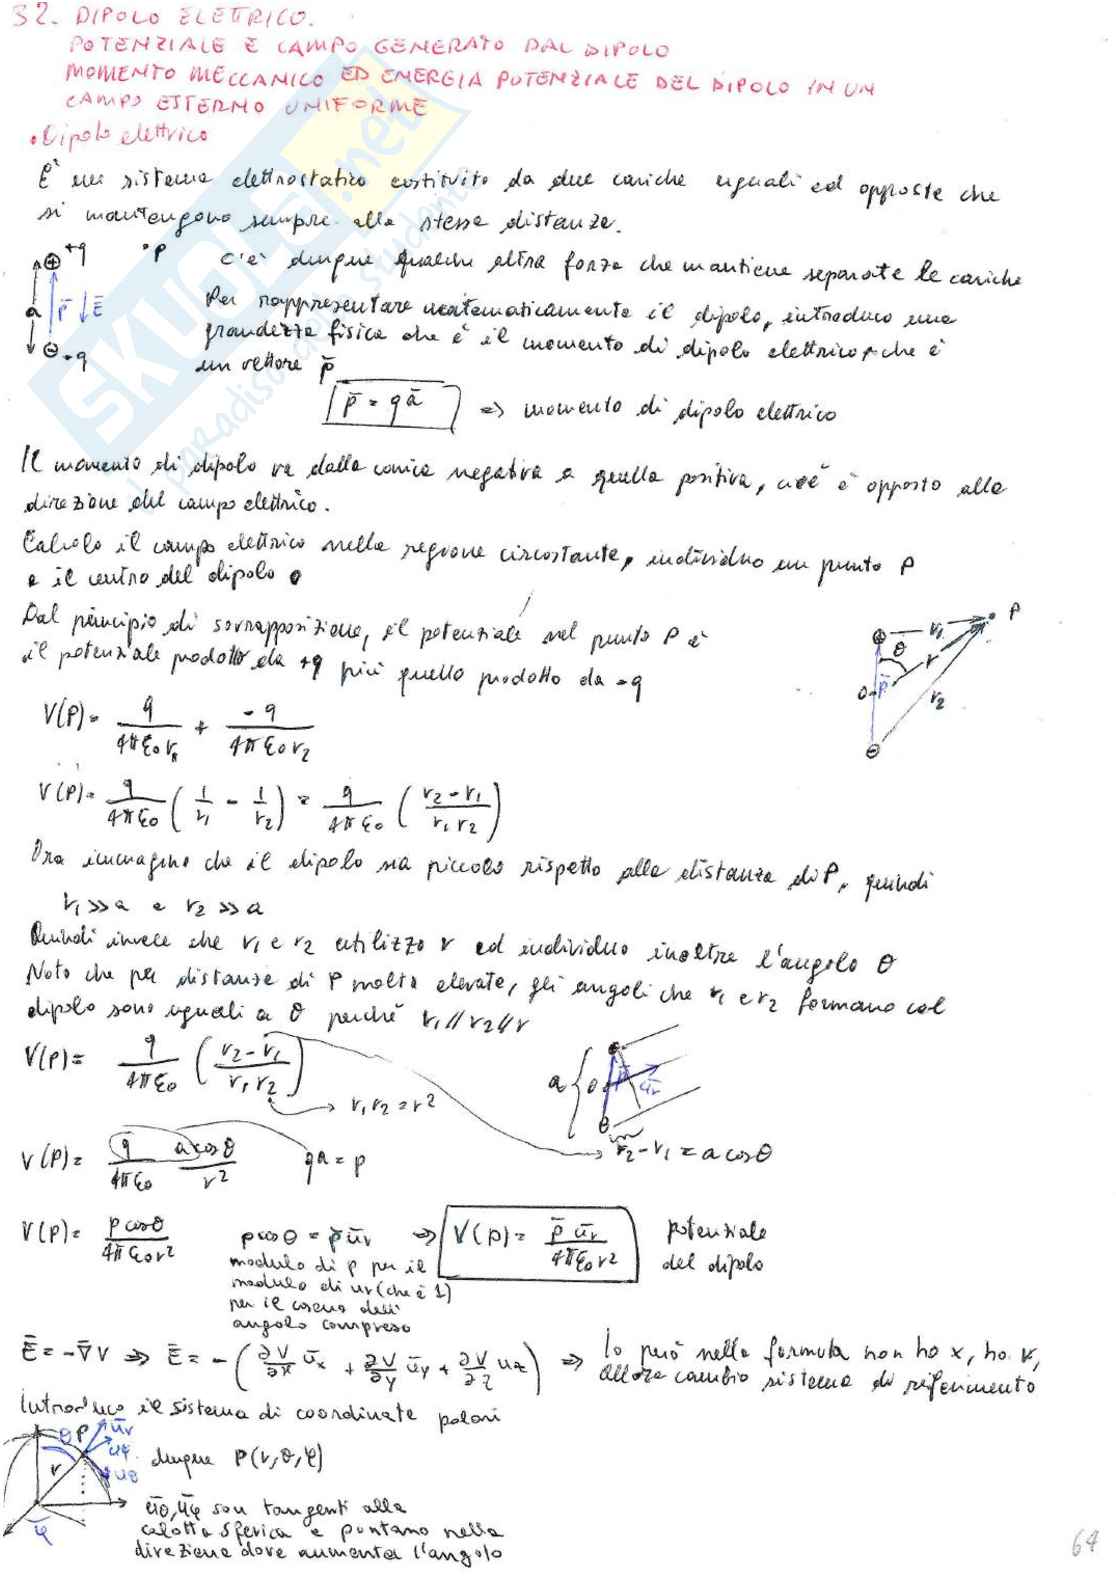 32. DIPOLO ELETTRICO.
POTENZIALE E CAMPO GENERATO DAL DIPOLO
MOMENTO MECCANICO ED ENERGIA POTENZIALE DEL DIPOLO IN UN
CAMPO ESTERNO UNIFORME
• Dipolo elettrico
È un sistema elettrostatico costituito da due cariche uguali ed opposte che
si mantengono sempre alla stessa distanza.
+q
P
a
p̄ ↓ Ē
-q
C'è dunque qualche altra forza che mantiene separate le cariche
Per rappresentare matematicamente il dipolo, introduco una
grandezza fisica che è il momento di dipolo elettrico, che è
un vettore p̄
p̄ = qā ⇒ momento di dipolo elettrico
Il momento di dipolo va dalla carica negativa a quella positiva, cioè è opposto alla
direzione del campo elettrico.
Calcolo il campo elettrico nella regione circostante, individuo un punto P
e il centro del dipolo o
Dal principio di sovrapposizione, il potenziale nel punto P è
il potenziale prodotto da +q più quello prodotto da -q
r₁ P
θ
r
o p̄
r₂
V(P) = q/4πε₀r₁ + -q/4πε₀r₂
V(P) = q/4πε₀ (1/r₁ - 1/r₂) = q/4πε₀ (r₂-r₁/r₁r₂)
Ora immagino che il dipolo sia piccolo rispetto alla distanza di P, quindi
r₁ >> a e r₂ >> a
Quindi invece che r₁ e r₂ utilizzo r ed individuo inoltre l'angolo θ
Noto che per distanze di P molto elevate, gli angoli che r₁ e r₂ formano col
dipolo sono uguali a θ perché r₁ // r₂ // r
V(P) = q/4πε₀ (r₂-r₁/r₁r₂)
r₁r₂ = r²
a { o p̄ ūr
r₂-r₁ = a cosθ
V(P) = q/4πε₀ a cosθ/r² qa = p
V(P) = p cosθ/4πε₀r²
p cosθ = p̄ ūr ⇒ V(P) = p̄ ūr/4πε₀r² potenziale
del dipolo
modulo di p per il
modulo di ur (che è 1)
per il coseno dell'
angolo compreso
Ē = -∇̄V ⇒ Ē = -(∂V/∂x ūx + ∂V/∂y ūy + ∂V/∂z uz) ⇒ Io però nella formula non ho x, ho r,
allora cambio sistema di riferimento
Introduco il sistema di coordinate polari
θ P ūr
uφ
r
uθ
φ
dunque P(r,θ,φ)
ūθ, ūφ son tangenti alla
calotta sferica e puntano nella
direzione dove aumenta l'angolo
64
SKUOLA.net
il paradiso dello studente